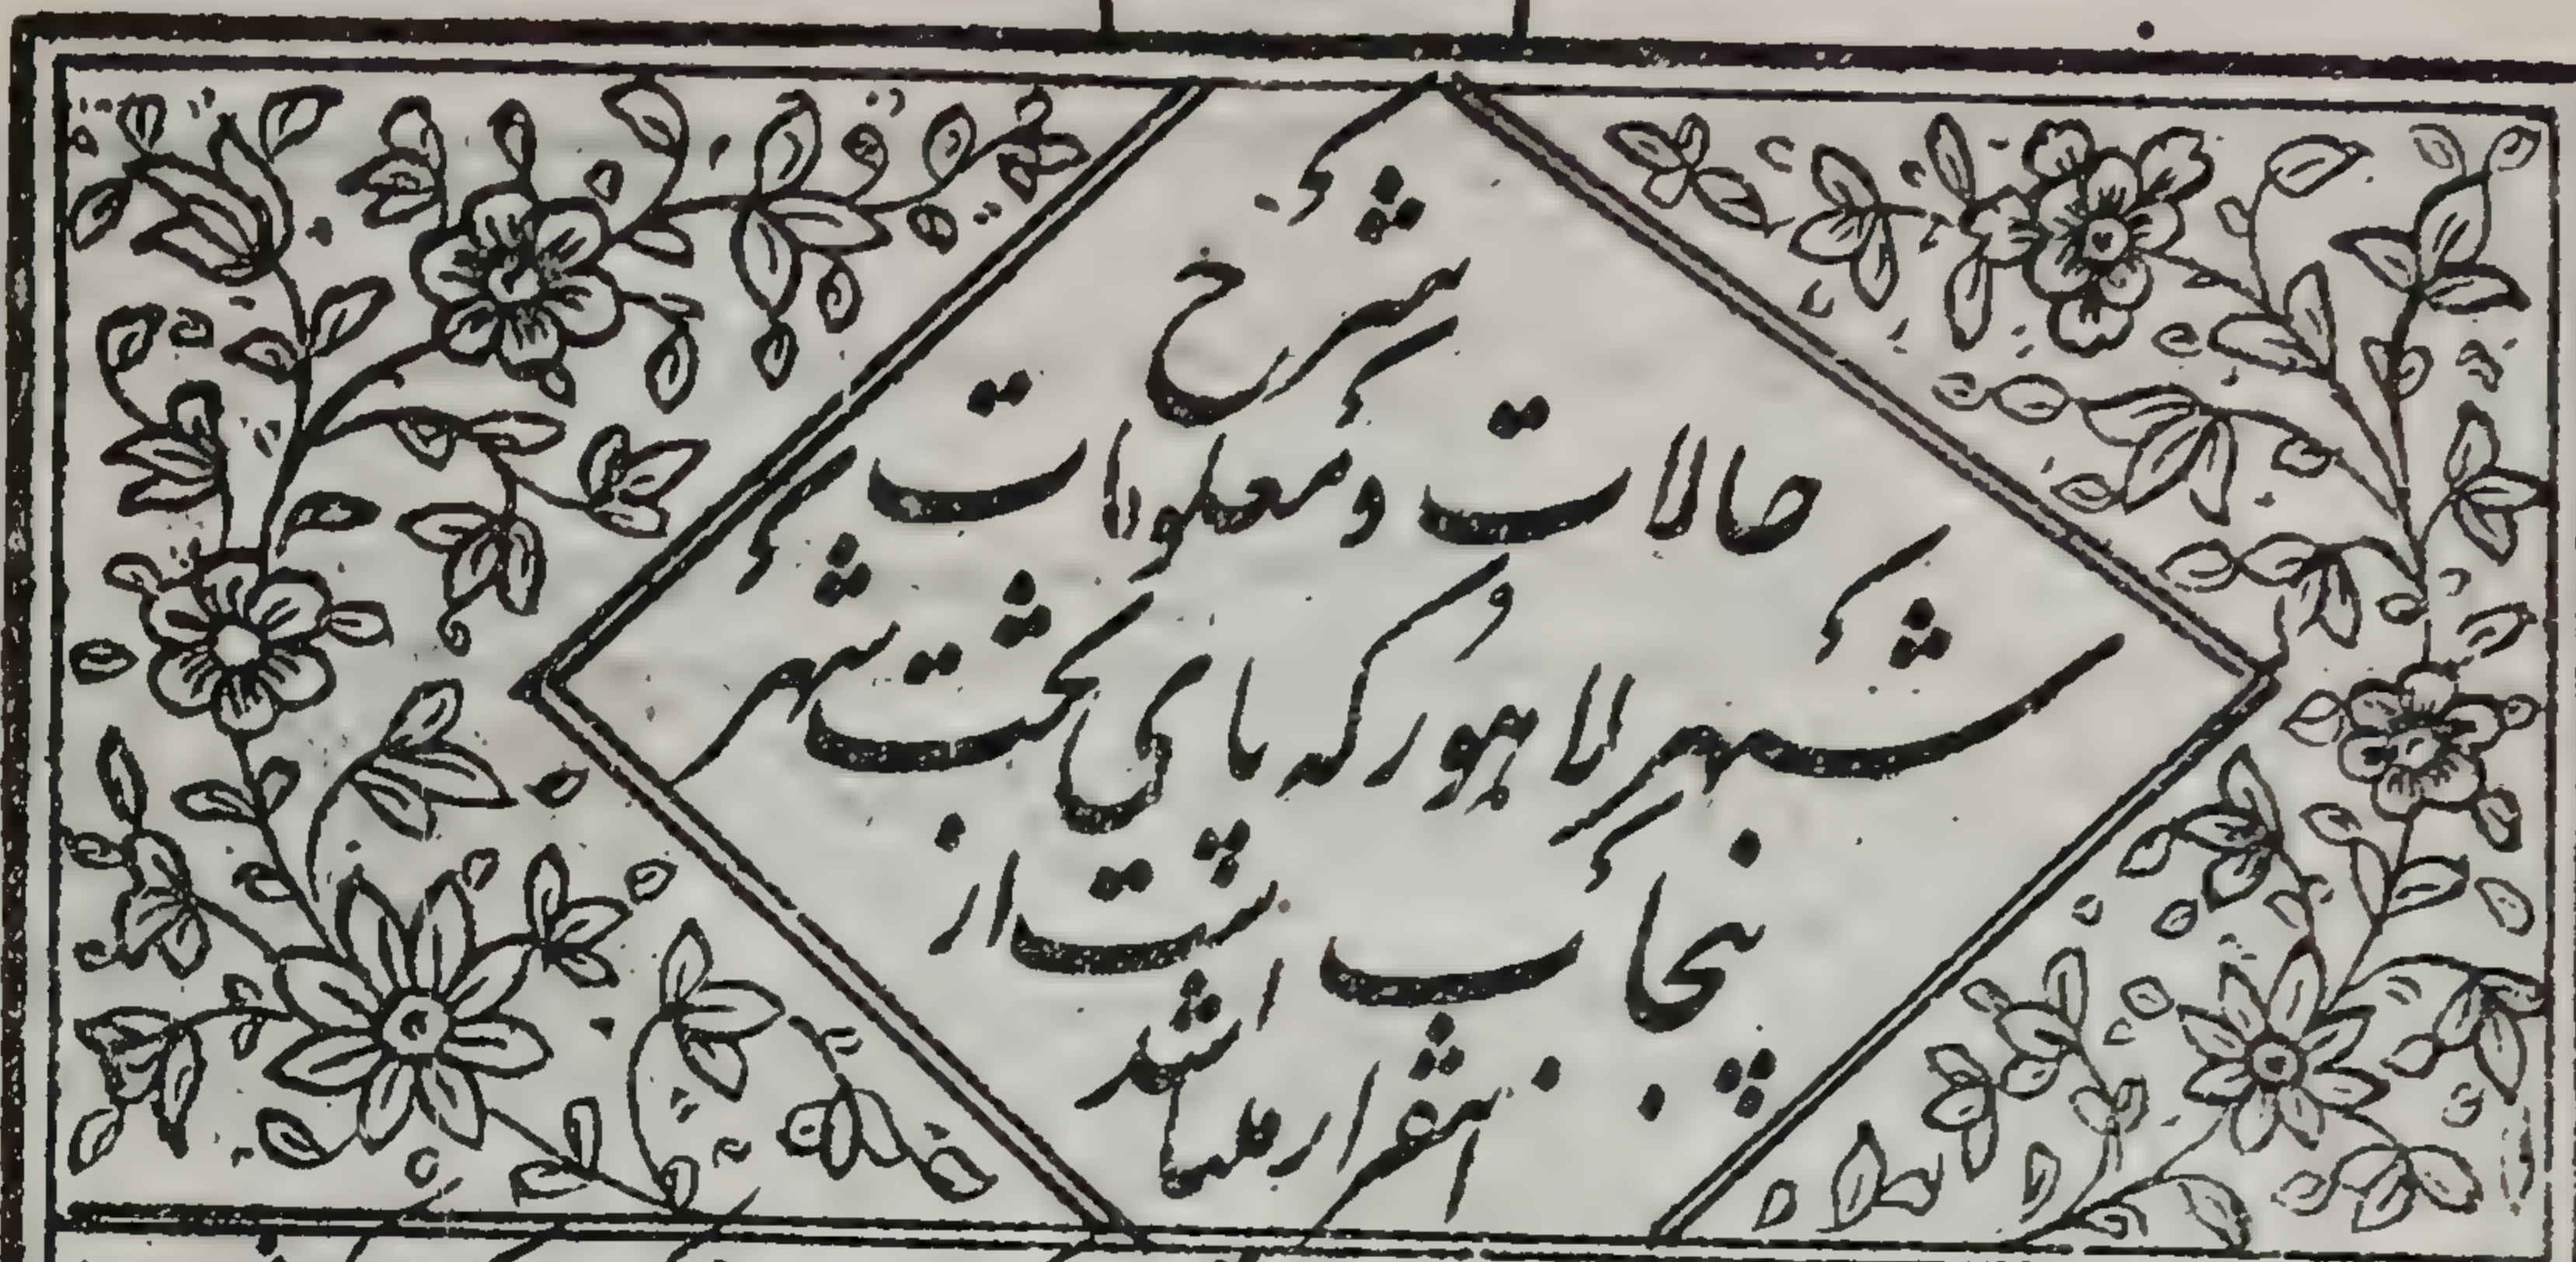 شرح
حالات و معلومات
شهر لاهور که پای تخت شهر
پنجاب است از
اینقرار میباشد